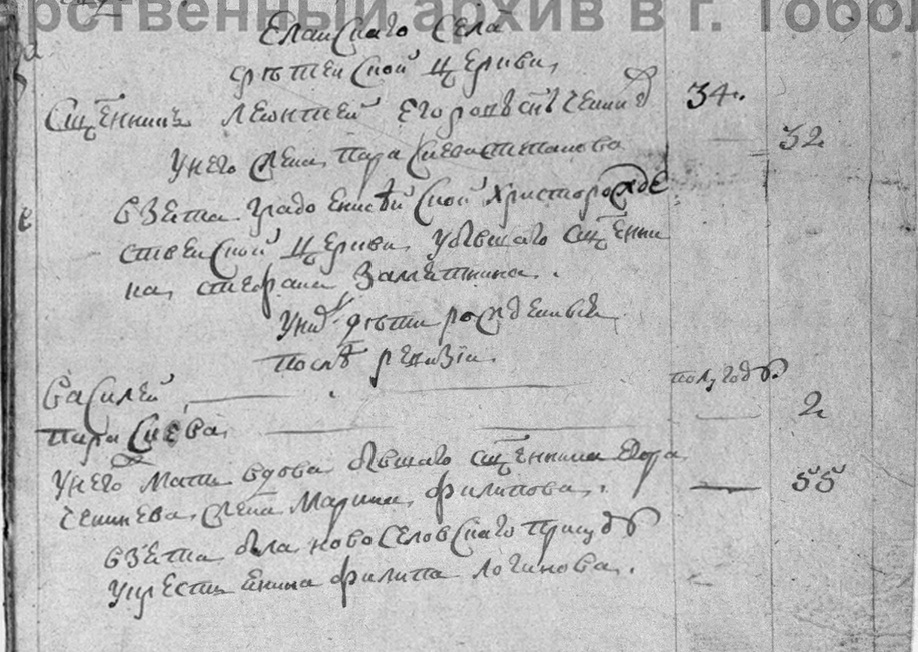 рственный архив в г. Тобол
Еланскаго Села
Церкви
Сщ҃енникъ Леонтей Егоровъ снъ 34.
У него жена Параскева Степанова 32
взета градо Енисейской Христорожде
ственской Церкви у бывшаго сщ҃енни
ка, стефана Заметнина.
У них дети рожденные
после ревизіи.
Василей полугоду
параскева 2
У него мать вдова бывшаго сщ҃енника Егора
жена Марина филипова, 55
взета была новоселовскаго приходу
у крестьенина филипа логинова.